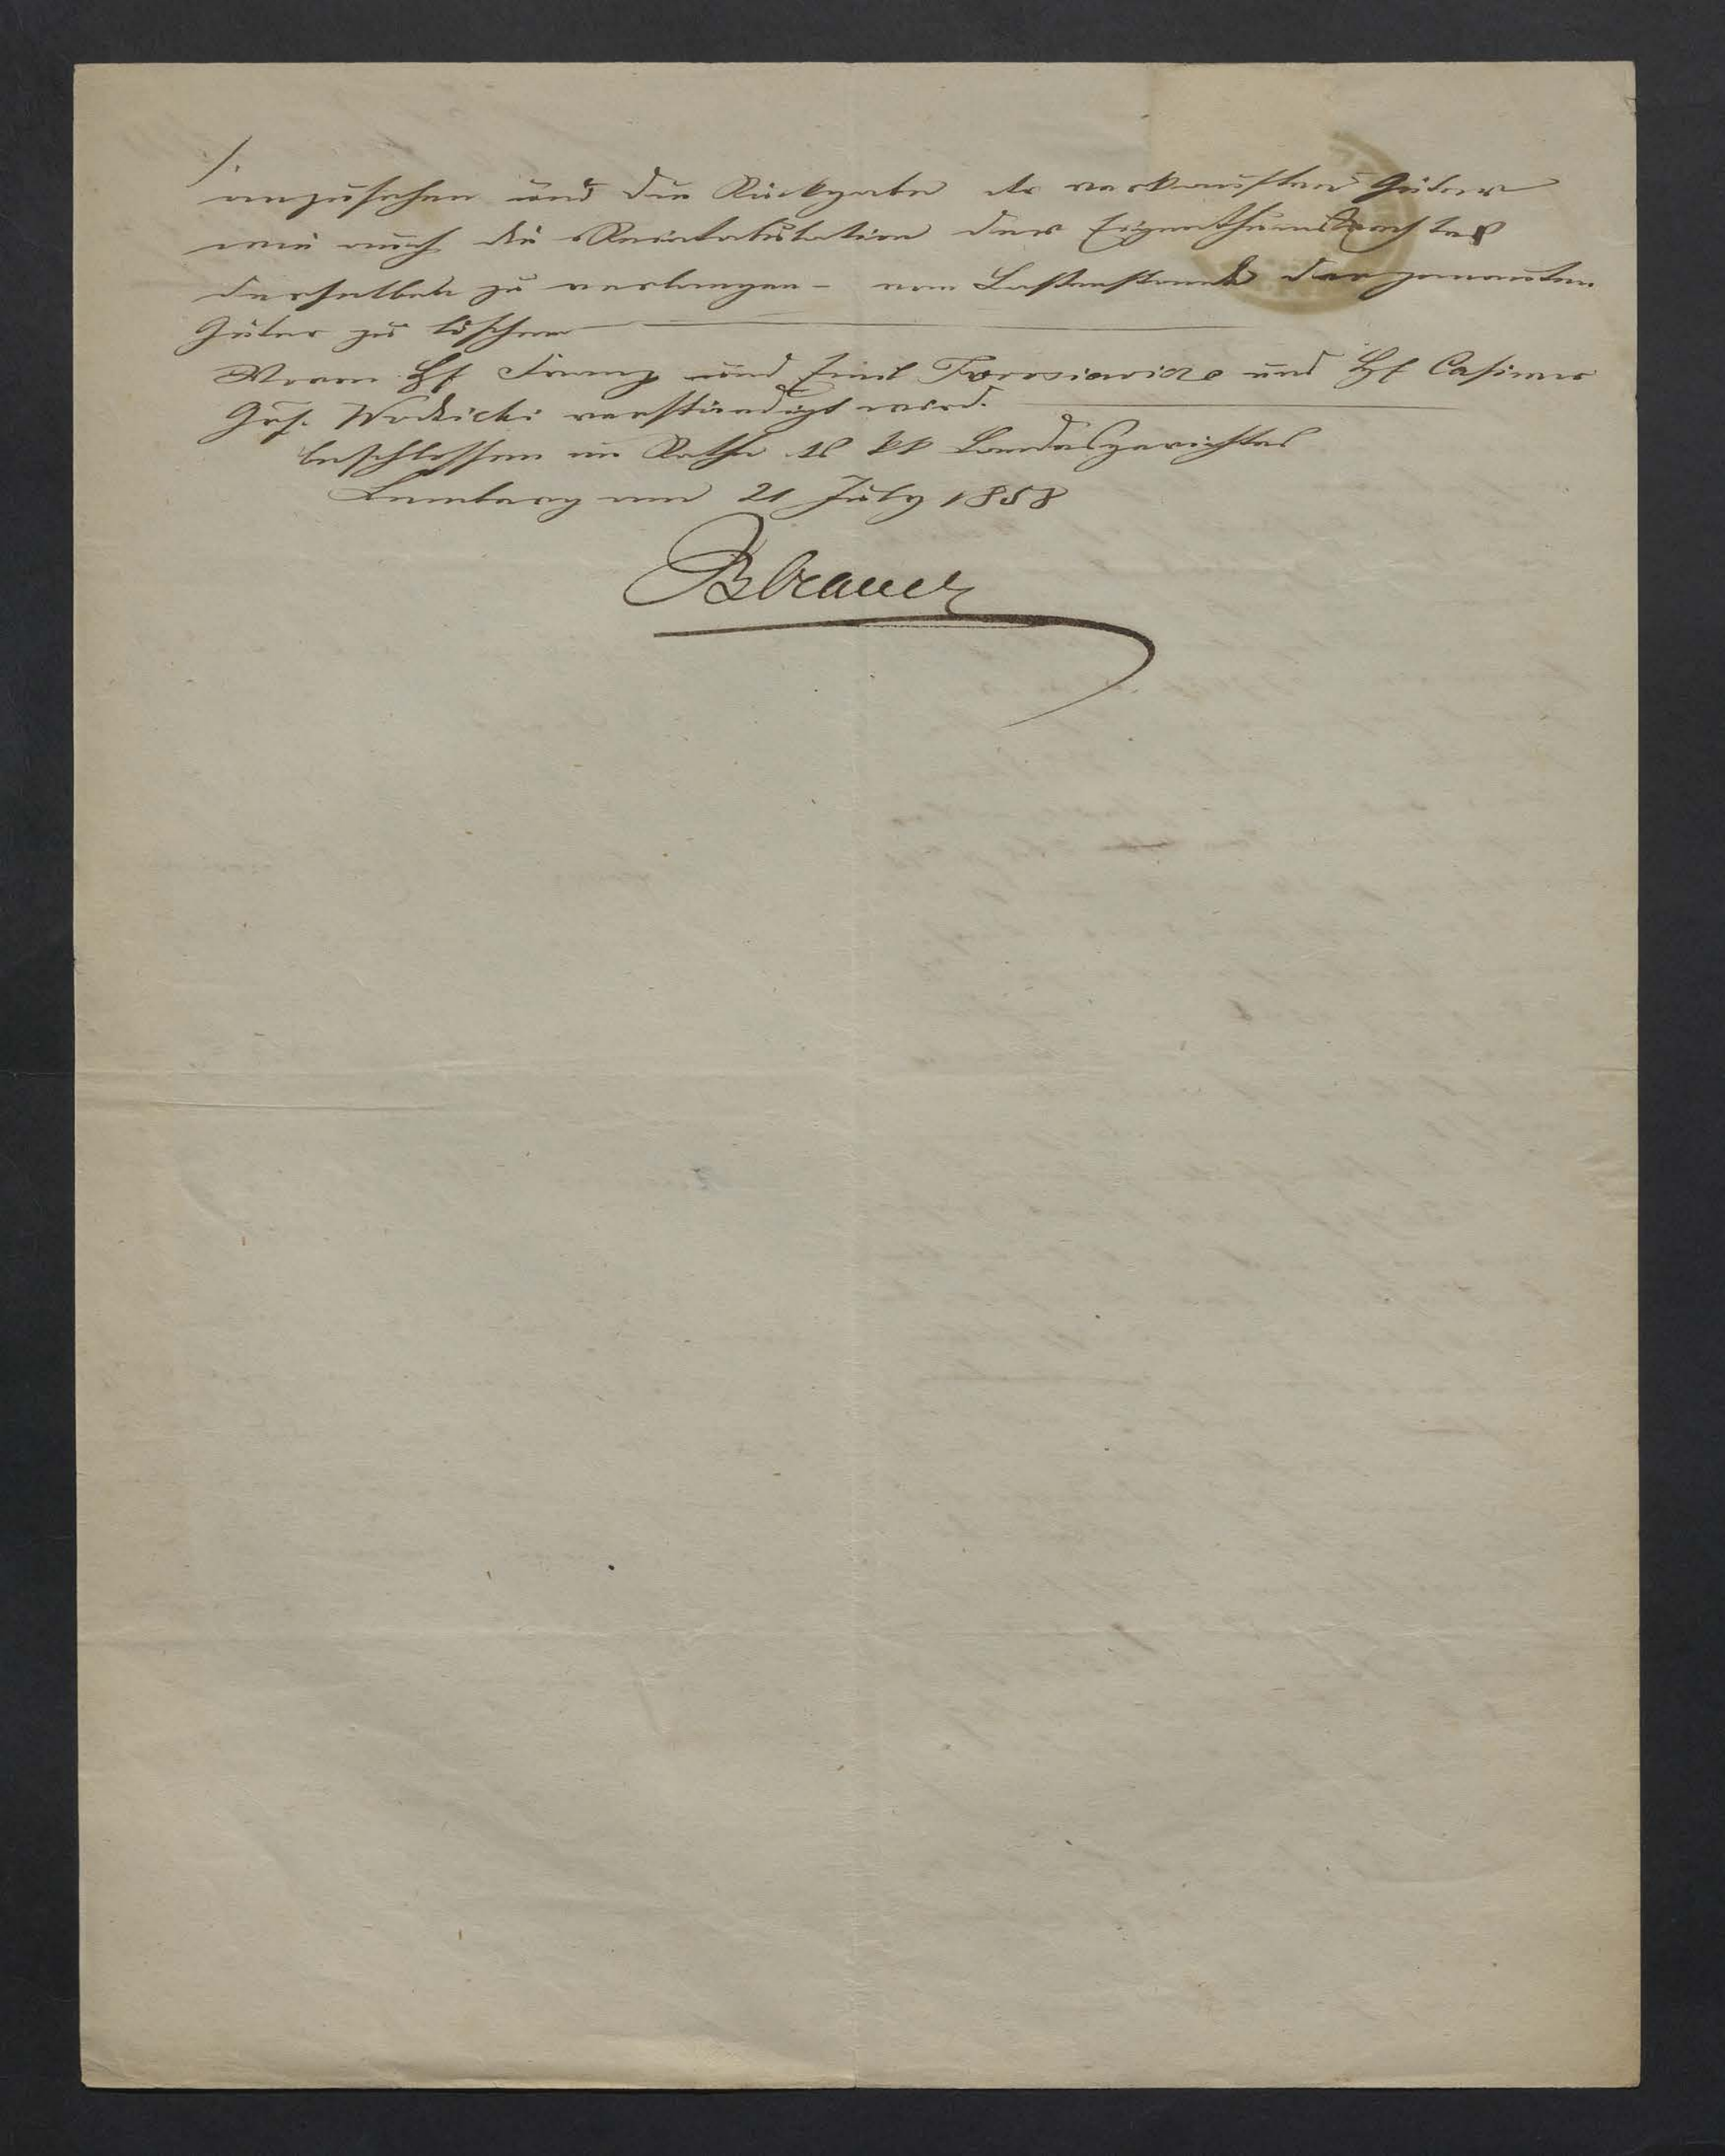 ./.
anzusehen und die Rückgabe der verkauften Güter
wie auch die Reintabulation des Eigenthumsrechtes
derselben zu verlangen – vom Lastenstande der genannten
Güter zu löschen
Wovon H Franz und Emil Torosiewicz und H Casimir
Graf. Wodzicki verständigt wird.
beschlossen im Rathe des kk Landesgerichtes
Lemberg am 21 July 1858